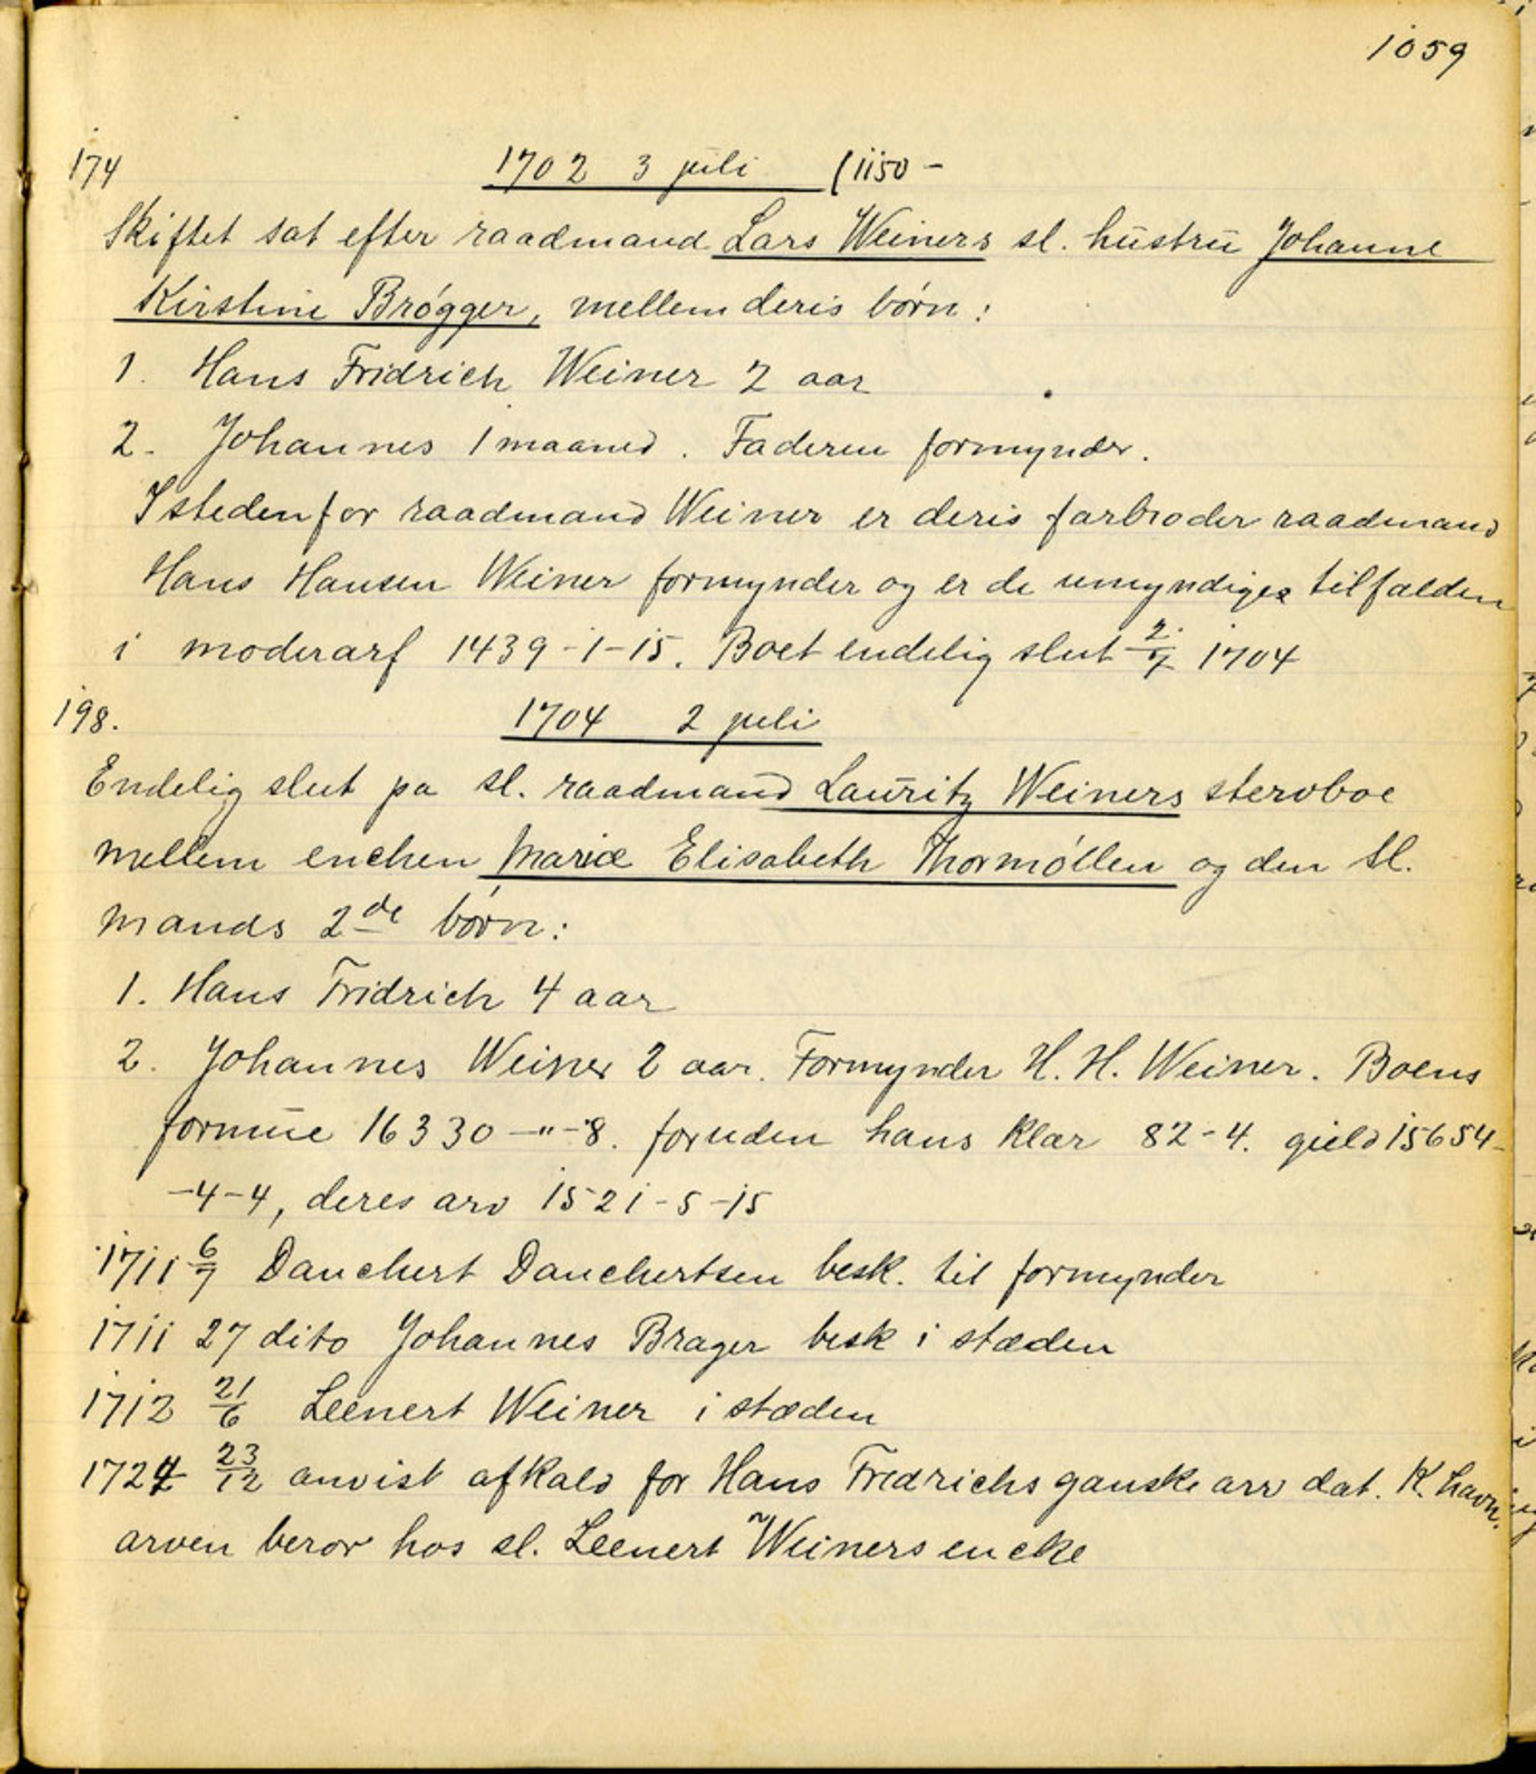 1059
174 1702 3 juli (1150 -
Skiftet sat efter raadmand Lars Weiners sl. hustru Johanne
Kirstine Brøgger, mellem deris børn:
1. Hans Fridrich Weiner 2 aar
2. Johannes 1 maaned. Faderen formynder.
Istedenfor raadmand Weiner er deris farbroder raadmand
Hans Hansen Weiner formynder og er de umyndiges tilfalden
i moderarf 1439-1-15. Boet endelig slut 2/7 1704
198. 1704 2 juli
Endelig slut pa sl. raadmand Lauritz Weiners stervboe
mellem enchen Marie Elisabeth Thormøllen og den sl.
mands 2de børn:
1. Hans Fridrich 4 aar
2. Johannes Weiner 2 aar. Formynder H. H. Weiner. Boens
formue 16330-"-8. foruden hans klær 82-4. gield 15654-
-4-4, deres arv 1521-5-15
1711 6/7 Danchert Danchertsen besk. til formynder
1711 27 dito Johannes Brager besk i stæden
1712 21/6 Leenert Weiner i stæden
1724 23/12 anvist afkald for Hans Fredrichs ganske arv dat. K.havn.
arven beror hos sl. Leenert Weiners encke